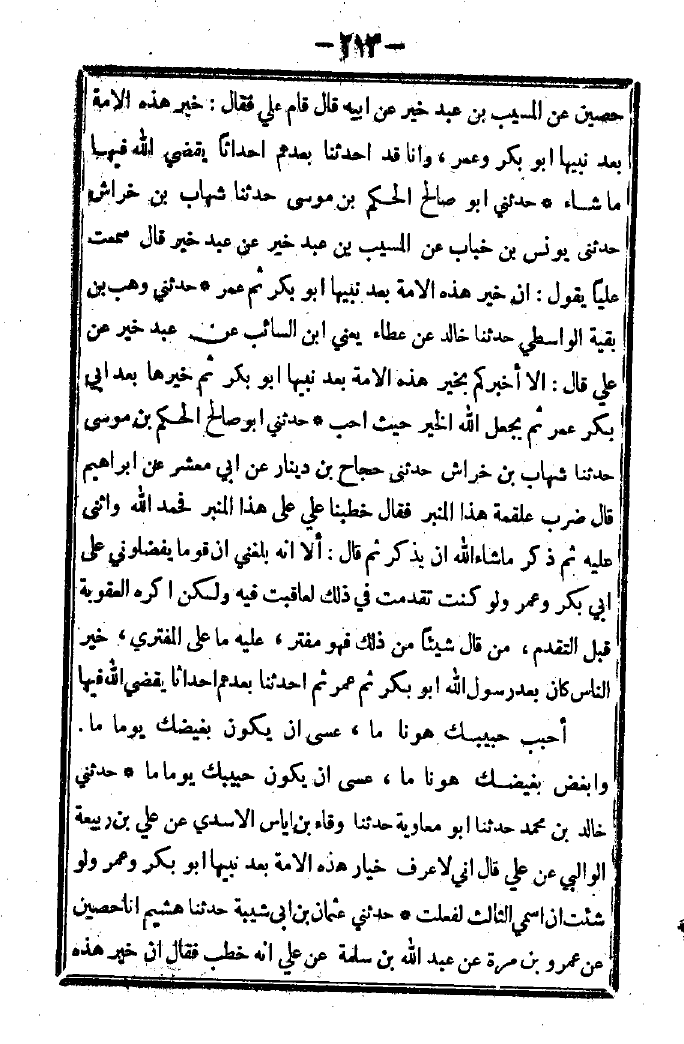 — ٢١٣ —
حصين عن المسيب بن عبد خير عن ابيه قال قام علي فقال : خير هذه الامة
بعد نبيها ابو بكر وعمر ، وانا قد احدثنا بعدهم احداثاً يقضي الله فيها
ما شاء * حدثني ابو صالح الحكم بن موسى حدثنا شهاب بن خراش
حدثنى يونس بن خباب عن المسيب بن عبد خير عن عبد خير قال سمعت
علياً يقول : ان خير هذه الامة بعد نبيها ابو بكر ثم عمر * حدثني وهب بن
بقية الواسطي حدثنا خالد عن عطاء يعني ابن السائب عن عبد خير عن
علي قال : الا أخبركم بخير هذه الامة بعد نبيها ابو بكر ثم خيرها بعد ابي
بكر عمر ثم يجعل الله الخير حيث احب * حدثني ابو صالح الحكم بن موسى
حدثنا شهاب بن خراش حدثنى حجاج بن دينار عن ابي معشر عن ابراهيم
قال ضرب علقمة هذا المنبر فقال خطبنا علي على هذا المنبر فحمد الله واثنى
عليه ثم ذكر ماشاءالله ان يذكر ثم قال : ألا انه بلغني ان قوما يفضلوني على
ابي بكر وعمر ولو كنت تقدمت في ذلك لعاقبت فيه ولكن اكره العقوبة
قبل التقدم ، من قال شيئاً من ذلك فهو مفتر ، عليه ما على المفتري ، خير
الناس كان بعد رسول الله ابو بكر ثم عمر ثم احدثنا بعدهم احداثا يقضي الله فيها
أحبب حبيبك هونا ما ، عسى ان يكون بغيضك يوما ما .
وابغض بغيضك هونا ما ، عسى ان يكون حبيبك يوما ما * حدثني
خالد بن محمد حدثنا ابو معاوية حدثنا وقاء بن اياس الاسدي عن علي بن ربيعة
الوالبي عن علي قال اني لاعرف خيار هذه الامة بعد نبيها ابو بكر وعمر ولو
شئت ان اسمي الثالث لفعلت * حدثني عثمان بن ابي شيبة حدثنا هشيم انا حصين
عن عمرو بن مرة عن عبد الله بن سلمة عن علي انه خطب فقال ان خير هذه